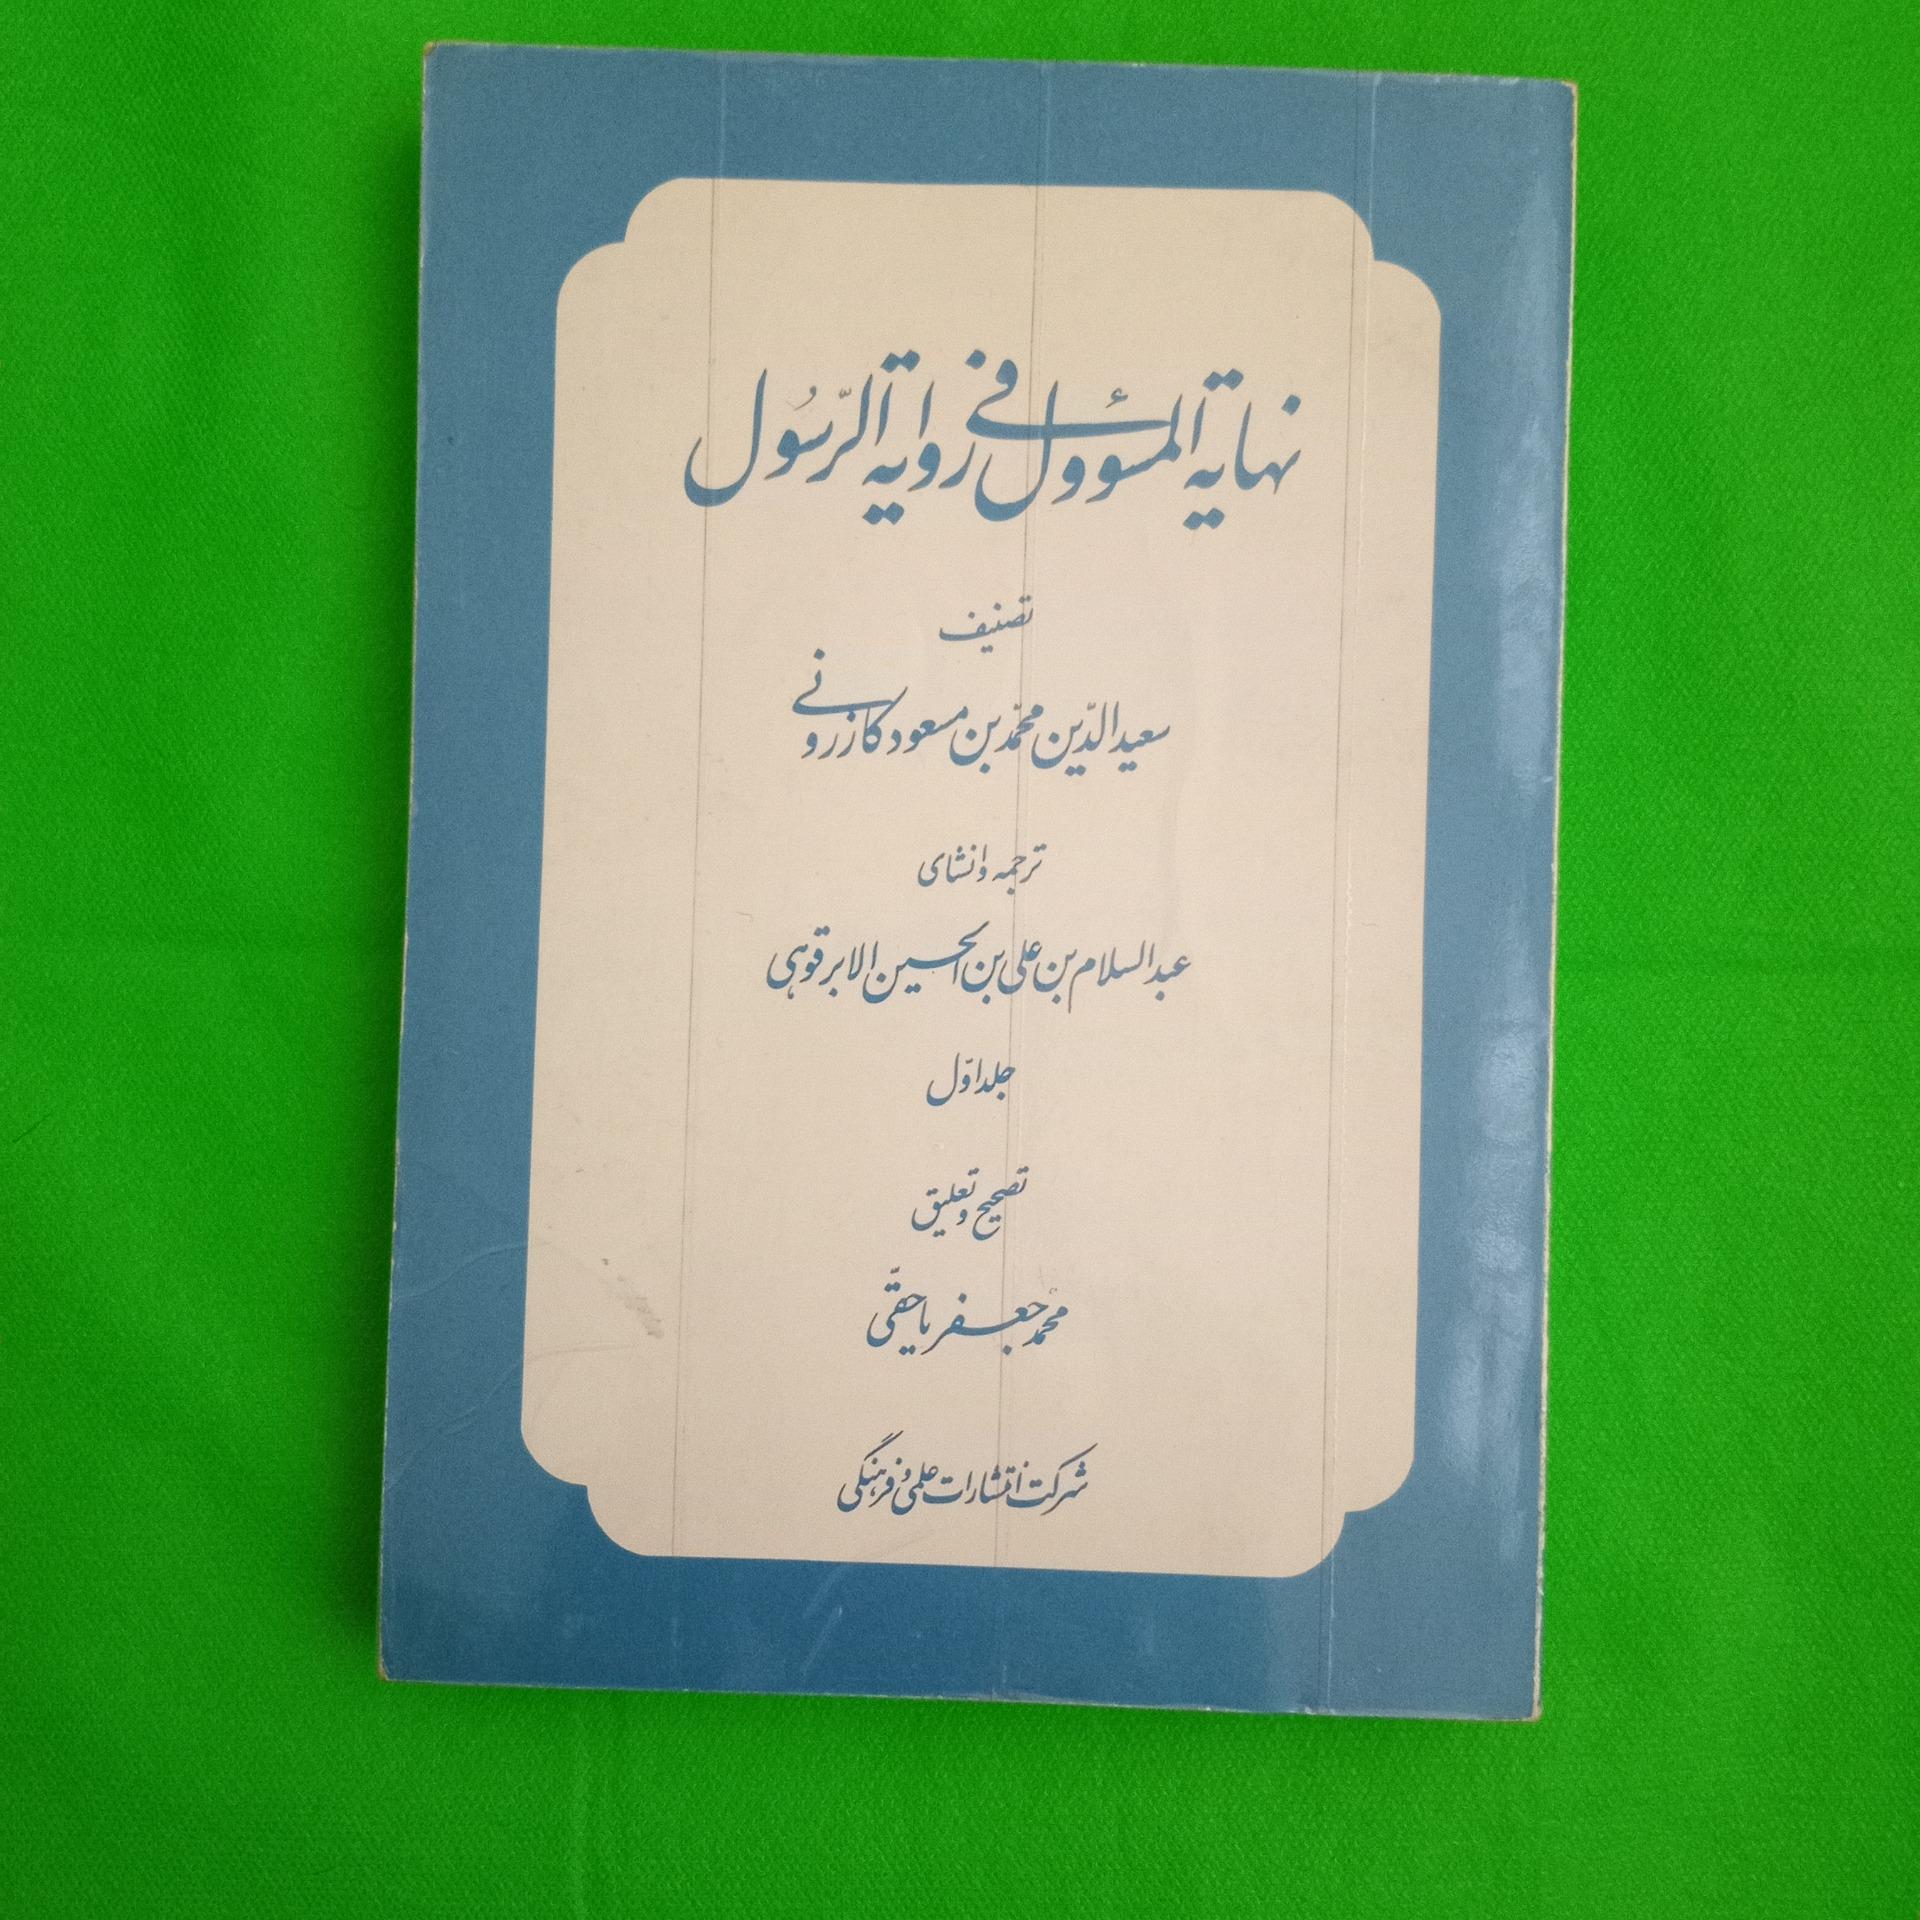 نهایة المسؤول فی روایة الرّسُول
تصنیف
سعیدالدّین محمّد بن مسعود کازرونی
ترجمه و انشای
عبدالسلام بن علی بن الحسین الابرقوهی
جلد اوّل
تصحیح و تعلیق
محمّد جعفر یاحقّی
شرکت انتشارات علمی و فرهنگی